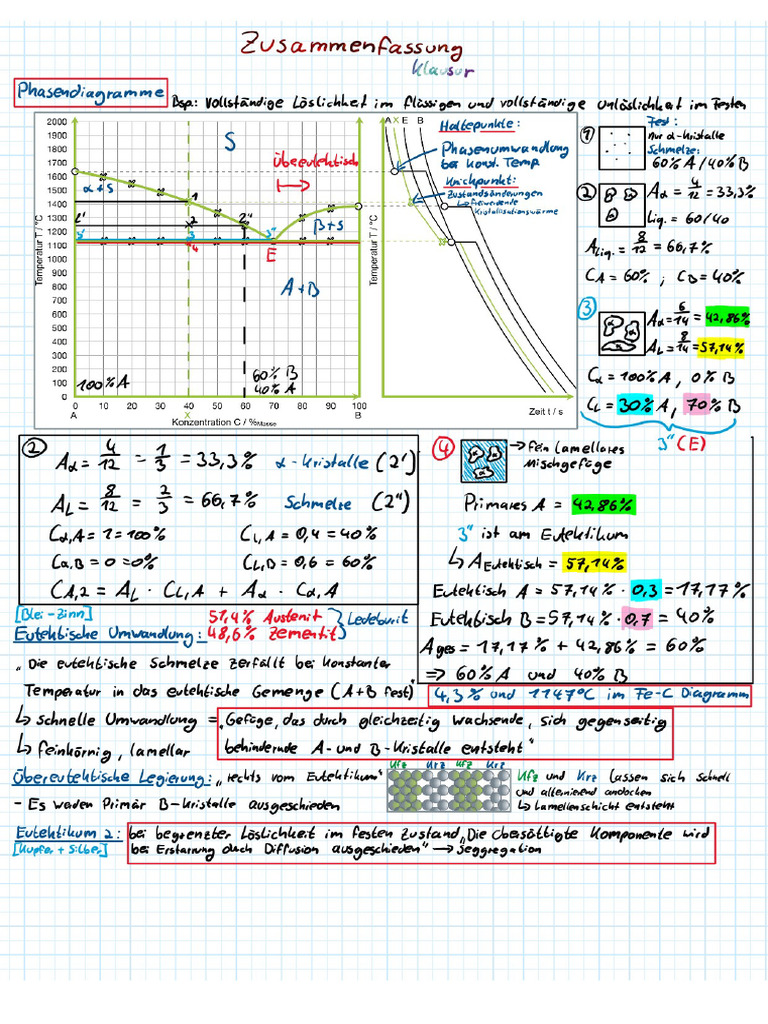 Zusammenfassung
Klausur
Phasendiagramme
Bsp: Vollständige Löslichkeit im flüssigen und vollständige Unlöslichkeit im Festen
2000
1900
1800
1700
1600
1500
1400
1300
1200
1100
1000
900
800
700
600
500
400
300
200
100
0
Temperatur T / °C
S
Übereutektisch
α+S
1
2'
2
2''
β+S
3'
3
3''
4
E
A+B
100% A
60% B
40% A
0 10 20 30 40 50 60 70 80 90 100
A X B
Konzentration C / %Masse
A X E B
Temperatur T / °C
Haltepunkte:
Phasenumwandlung
bei konst. Temp
Knickpunkt:
Zustandsänderungen
↳ freiwerdende
Kristallisationswärme
Zeit t / s
1
Fest:
nur α-Kristalle
Schmelze:
60% A / 40% B
2
Aα = 4/12 = 33,3%
Liq. = 60/40
ALiq. = 8/12 = 66,7%
CA = 60% ; CB = 40%
3
Aα = 6/14 = 42,86%
AL = 8/14 = 57,14%
Cα = 100% A, 0% B
CL = 30% A, 70% B
3'' (E)
2
Aα = 4/12 = 1/3 = 33,3% α-Kristalle (2')
AL = 8/12 = 2/3 = 66,7% Schmelze (2'')
Cα,A = 1 = 100% CL,A = 0,4 = 40%
Cα,B = 0 = 0% CL,B = 0,6 = 60%
CA,2 = AL · CL,A + Aα · Cα,A
4
→ fein lamellares
Mischgefüge
Primäres A = 42,86%
3'' ist am Eutektikum
↳ AEutektisch = 57,14%
Eutektisch A = 57,14% · 0,3 = 17,17%
Eutektisch B = 57,14% · 0,7 = 40%
Ages = 17,17% + 42,86% = 60%
⇒ 60% A und 40% B
[Blei-Zinn]
51,4% Austenit
48,6% Zementit
} Ledeburit
Eutektische Umwandlung:
„Die eutektische Schmelze zerfällt bei konstanter
Temperatur in das eutektische Gemenge (A+B fest)
4,3% und 1147°C im Fe-C Diagramm
↳ schnelle Umwandlung = „Gefüge, das durch gleichzeitig wachsende, sich gegenseitig
↳ feinkörnig, lamellar behindernde A- und B-Kristalle entsteht"
Übereutektische Legierung: „rechts vom Eutektikum"
- Es werden Primär B-Kristalle ausgeschieden
Kfz Krz Kfz Krz
Kfz und Krz lassen sich schnell
und alternierend andocken
↳ Lamellenschicht entsteht
Eutektikum 2: bei begrenzter Löslichkeit im festen Zustand „Die übersättigte Komponente wird
[Kupfer + Silber] bei Erstarrung durch Diffusion ausgeschieden" → Seggregation